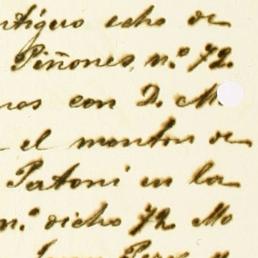 ntiguo echo de
Piñones, n.º 72.
nos con D. M
el monton de
Patoni en la
n.º dicho 72 Mo
Juan Perez y